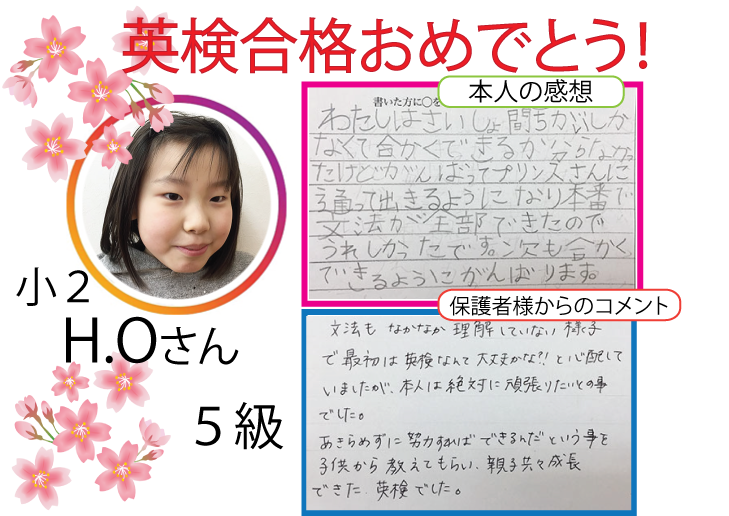 英検合格おめでとう!
本人の感想
書いた方に○を
わたしはさいしょ間ちがいしか
なくて合かくできるか分らなかっ
たけどがんばってプリンスさんに
通って出きるようになり本番で
文法が全部できたので
うれしかったです。次も合かく
できるようにがんばります。
保護者様からのコメント
文法も なかなか 理解していない 様子
で最初は 英検なんて 大丈夫かな?! と心配して
いましたが、本人は 絶対に 頑張りたいとの事
でした。
あきらめずに 努力すれば できるんだ という事を
子供から 教えてもらい、親子共々 成長
できた 英検 でした。
小2
H.Oさん
5級